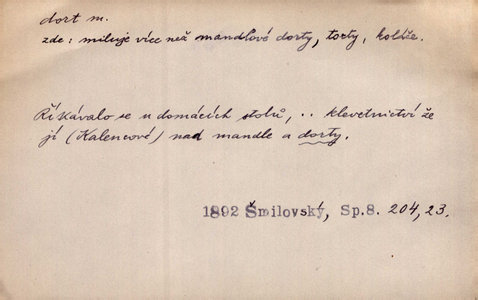 dort m.
zde: miluje více než mandlové dorty, torty, koláče.
Říkávalo se u domácích stolů, .. klevetnictví že
jí (Kalencové) nad mandle a dorty.
1892 Šmilovský, Sp.8. 204,23.